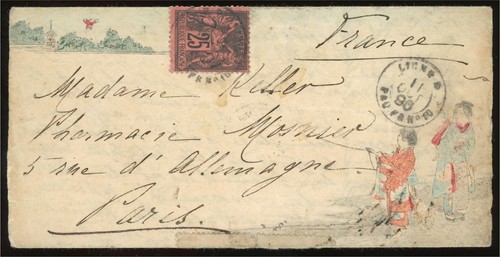 France
25
LIGNE N
11
90
PAQ. FR. Nº 10
Madame Keller
Pharmacie Mosnier
5 rue d'Allemagne
Paris.